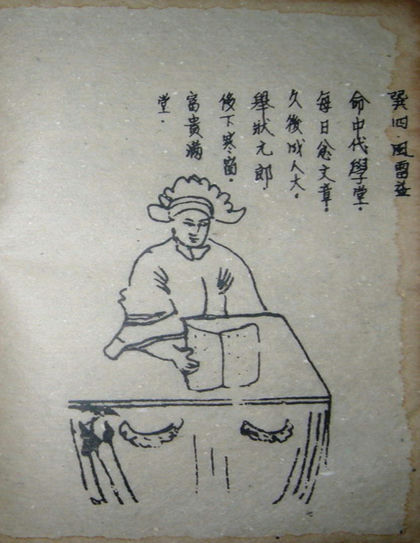 巽四．風雷益
命中代學堂．
每日念文章．
久後成人大．
舉狀元郎．
後下寒窗．
富貴滿
堂．